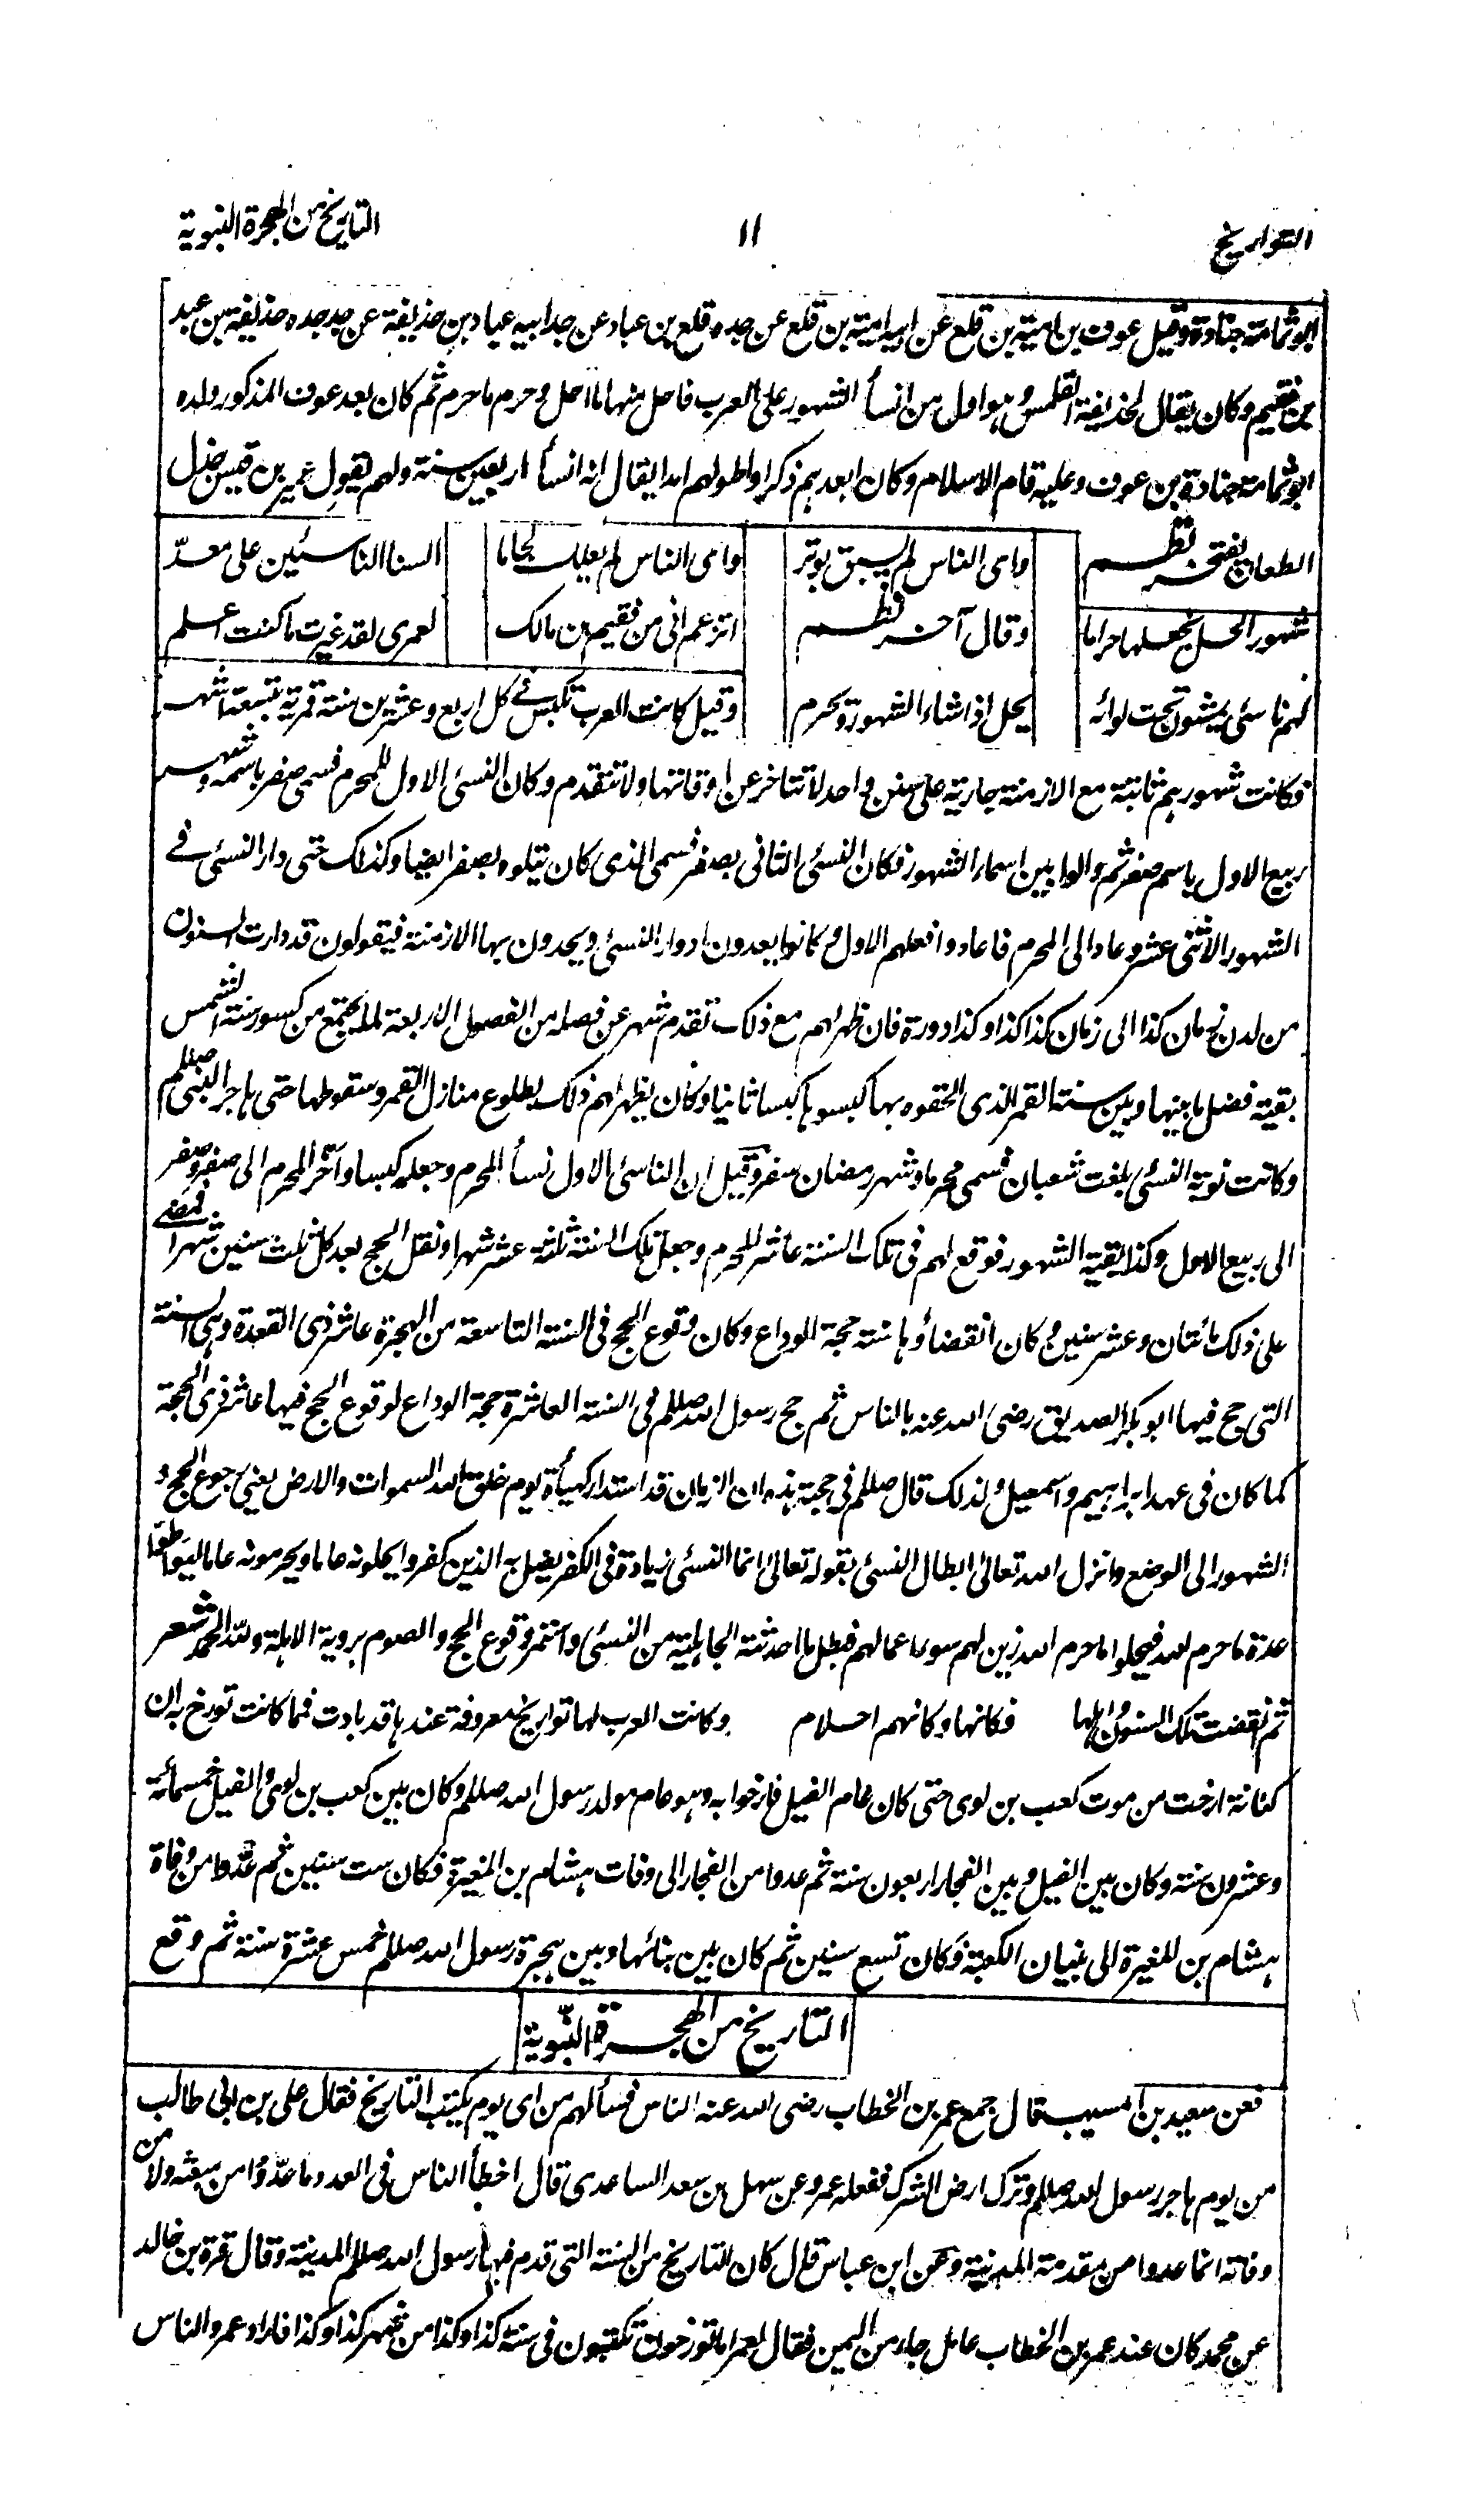 التواريخ ١١ التاريخ من الهجرة النبوية
ابو ثمامة جنادة وقيل عوف بن امية بن قلع عن ابيه امية بن قلع عن جده قلع بن عباد عن جد ابيه عباد بن حذيفة عن جد جده حذيفة بن عبد
بن فقيم وكان يقال لحذيفة القلمس وهو اول من انسأ الشهور على العرب فاحل منها ما احل وحرم ما حرم ثم كان بعد عوف المذكور ولده
ابو ثمامة جنادة بن عوف وعليه قام الاسلام وكان ابعدهم ذكرا واطولهم امدا يقال انه انسأ اربعين سنة ولهم يقول عمير بن قيس جذل
الطعان يفتخر نظم واى الناس لم يسبق بوتر واى الناس لم يعلك لجاما السنا الناسئين على معدّ
شهور الحل نجعلها حراما وقال آخر نظم اتزعم انى من فقيم بن مالك لعمرى لقد غيرت ما كنت اعلم
لهم ناسئ يمشون تحت لوائه يحل اذا شاء الشهور ويحرم وقيل كانت العرب تكبس فى كل اربع وعشرين سنة قمرية بتسعة اشهر
فكانت شهورهم ثابتة مع الازمنة جارية على سنن واحد لا تتاخر عن اوقاتها ولا تتقدم وكان النسئ الاول للمحرم فسمى صفر باسمه وشهر
ربيع الاول باسم صفر ثم والوا بين اسماء الشهور فكان النسئ الثانى بصفر فسمى الذى كان يتلوه بصفر ايضا وكذلك حتى دار النسئ فى
الشهور الاثنى عشر وعاد الى المحرم فاعادوا فعلهم الاول وكانوا يعدون ادوار النسئ ويحدون بها الازمنة فيقولون قد دارت السنون
من لدن زمان كذا الى زمان كذا كذا وكذا دورة فان ظهر لهم مع ذلك تقدم شهر عن فصله من الفصول الاربعة لما يجتمع من كسور سنة الشمس
بقية فضل ما بينها وبين سنة القمر الذى الحقوه بها كبسوها كبسا ثانيا وكان يظهر لهم ذلك بطلوع منازل القمر وسقوطها حتى هاجر النبى صللم
وكانت نوبة النسئ بلغت شعبان فسمى محرما وشهر رمضان صفر وقيل ان الناسئ الاول نسأ المحرم وجعله كبسا واخر المحرم الى صفر وصفر
الى ربيع الاول وكذا بقية الشهور فوقع لهم فى تلك السنة عاشر المحرم وجعل تلك السنة ثلثة عشر شهرا ونقل الحج بعد كل ثلث سنين شهرا فمضى
على ذلك مائتان وعشر سنين وكان انقضاؤها سنة حجة الوداع وكان وقوع الحج فى السنة التاسعة من الهجرة عاشر ذى القعدة وهى السنة
التى حج فيها ابو بكر الصديق رضى الله عنه بالناس ثم حج رسول الله صللم فى السنة العاشرة حجة الوداع لوقوع الحج فيها عاشر ذى الحجة
كما كان فى عهد ابراهيم واسمعيل ولذلك قال صللم فى حجته هذه ان الزمان قد استدار كهيأة يوم خلق الله السموات والارض يعنى رجوع الحج و
الشهور الى الوضع وانزل الله تعالى ابطال النسئ بقوله تعالى انما النسئ زيادة فى الكفر يضل به الذين كفروا يحلونه عاما ويحرمونه عاما ليواطؤا
عدة ما حرم الله فيحلوا ما حرم الله زين لهم سوء اعمالهم فبطل ما احدثته الجاهلية من النسئ واستمر وقوع الحج والصوم بروية الاهلة ولله الحمد شعر
ثم انقضت تلك السنون واهلها فكانها وكانهم احلام وكانت العرب لها تواريخ معروفة عندها قد بادت فما كانت تورخ به ان
كنانة ارخت من موت كعب بن لوى حتى كان عام الفيل فارخوا به وهو عام مولد رسول الله صللم وكان بين كعب بن لوى والفيل خمسمائة
وعشرون سنة وكان بين الفيل وبين الفجار اربعون سنة ثم عدوا من الفجار الى وفات هشام بن المغيرة فكان ست سنين ثم عدوا من وفاة
هشام بن المغيرة الى بنيان الكعبة فكان تسع سنين ثم كان بين بنائها وبين هجرة رسول الله صللم خمس عشرة سنة ثم وقع
التاريخ من الهجرة النبوية
فعن سعيد بن المسيب قال جمع عمر بن الخطاب رضى الله عنه الناس فسألهم من اى يوم يكتب التاريخ فقال على بن ابى طالب
من يوم هاجر رسول الله صللم وترك ارض الشرك ففعله عمر وعن سهل بن سعد الساعدى قال اخطأ الناس فى العدد ما عدّوا من مبعثه ولا من
وفاته انما عدوا من مقدمه المدينة وعن ابن عباس قال كان التاريخ من السنة التى قدم فيها رسول الله صللم المدينة وقال قرة بن خالد
عن محمد كان عند عمر بن الخطاب عامل جاء من اليمن فقال لعمر اما تورخون تكتبون فى سنة كذا وكذا من شهر كذا وكذا فاراد عمر والناس